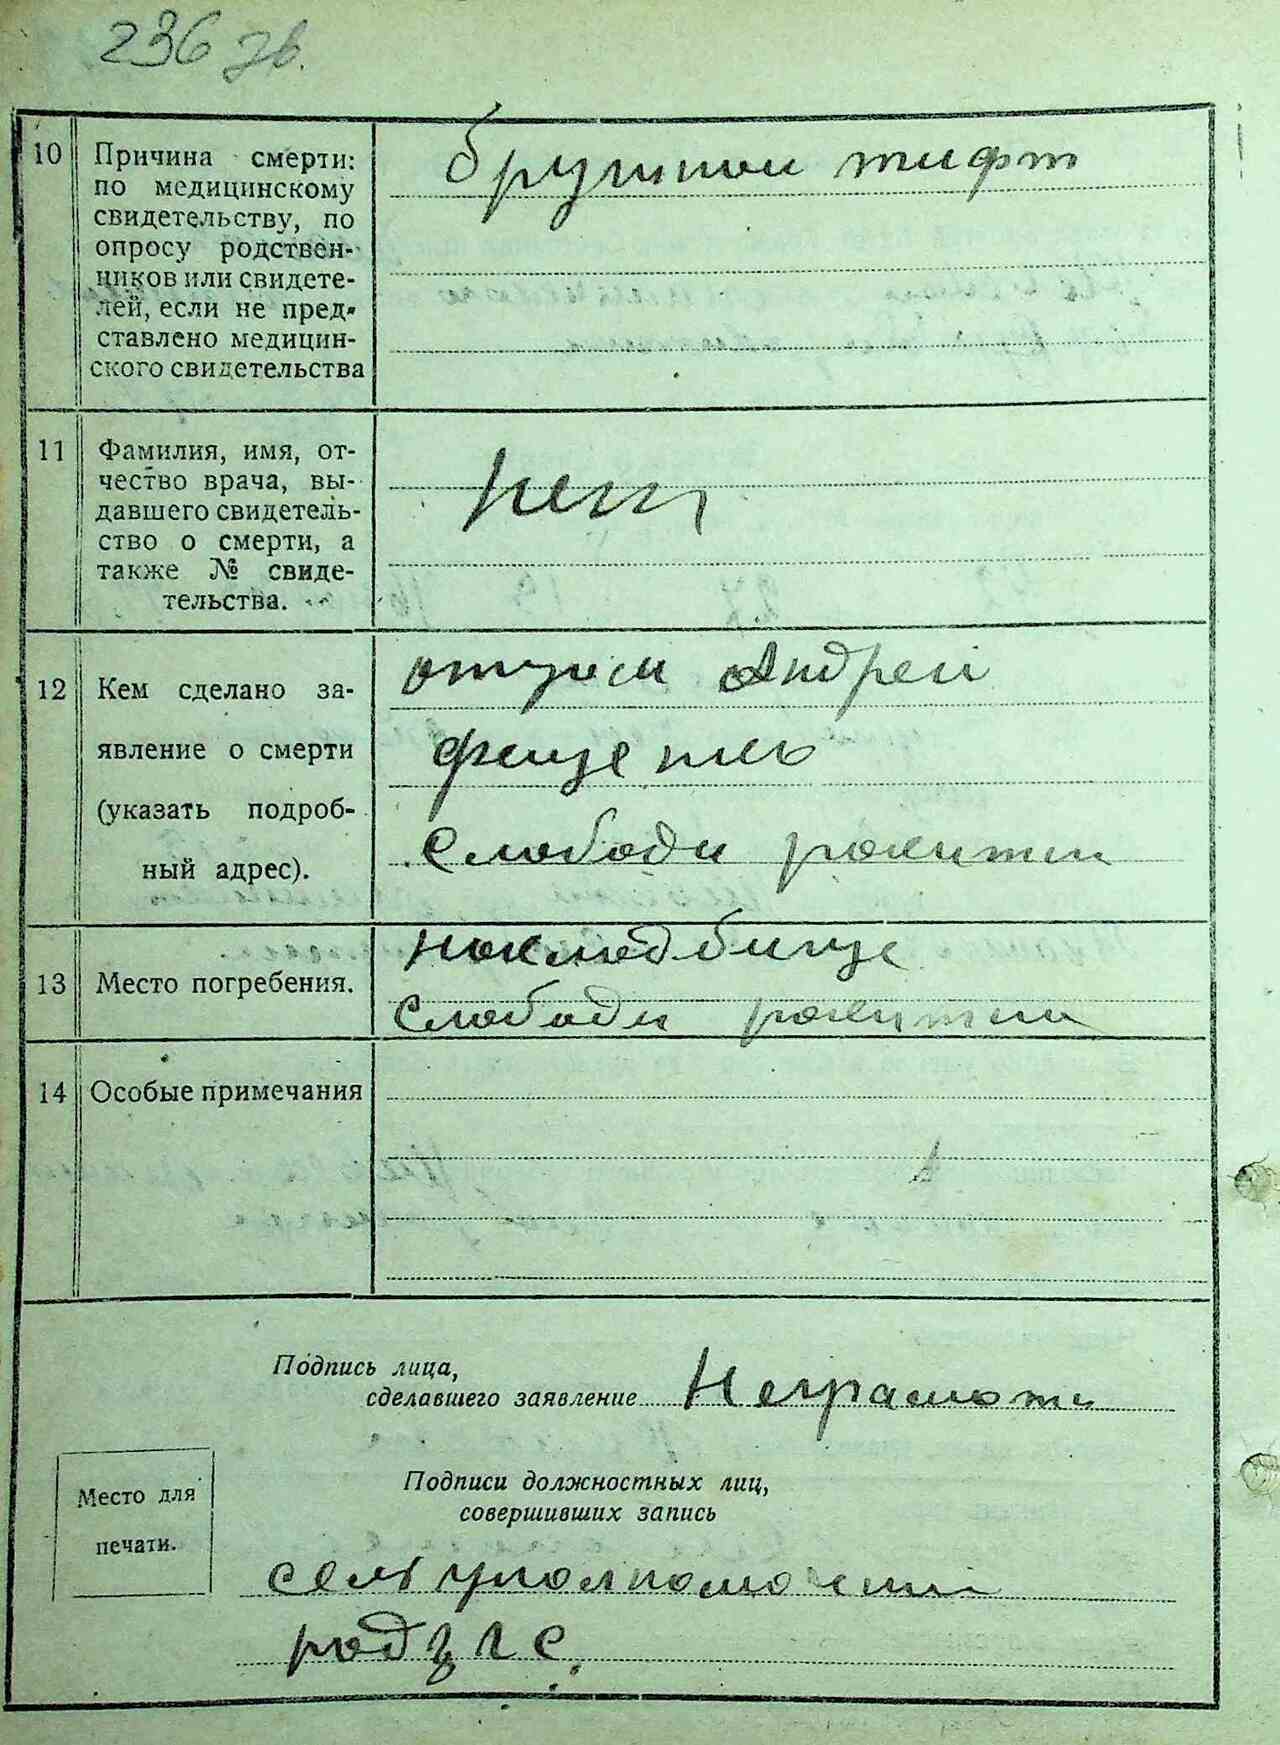 236 зв.
10 Причина смерти:
по медицинскому
свидетельству, по
опросу родствен-
ников или свидете-
лей, если не пред-
ставлено медицин-
ского свидетельства
брушной тифт
11 Фамилия, имя, от-
чество врача, вы-
давшего свидетель-
ство о смерти, а
также № свиде-
тельства.
нет
12 Кем сделано за-
явление о смерти
(указать подроб-
ный адрес).
отцем Андрей
слободи ракитни
13 Место погребения.
накладбище
слободи ракитни
14 Особые примечания
Подпись лица,
сделавшего заявление Неграмотн
Место для
печати.
Подписи должностных лиц,
совершивших запись
сель уполномочений